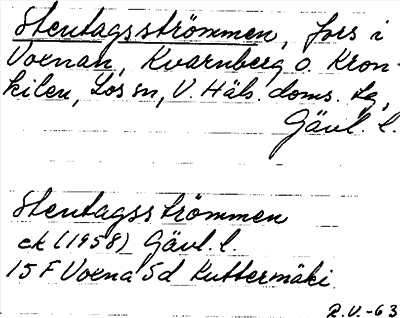 Stentagsströmmen, fors i
Voxnan, Kvarnberg o. Kron-
kilen, Los sn, V. Häls. doms. tg,
Gävl. l.
Stentagsströmmen
ek (1958) Gävl. l.
15 F Voxna 5d Kuttermäki
R.V.-63